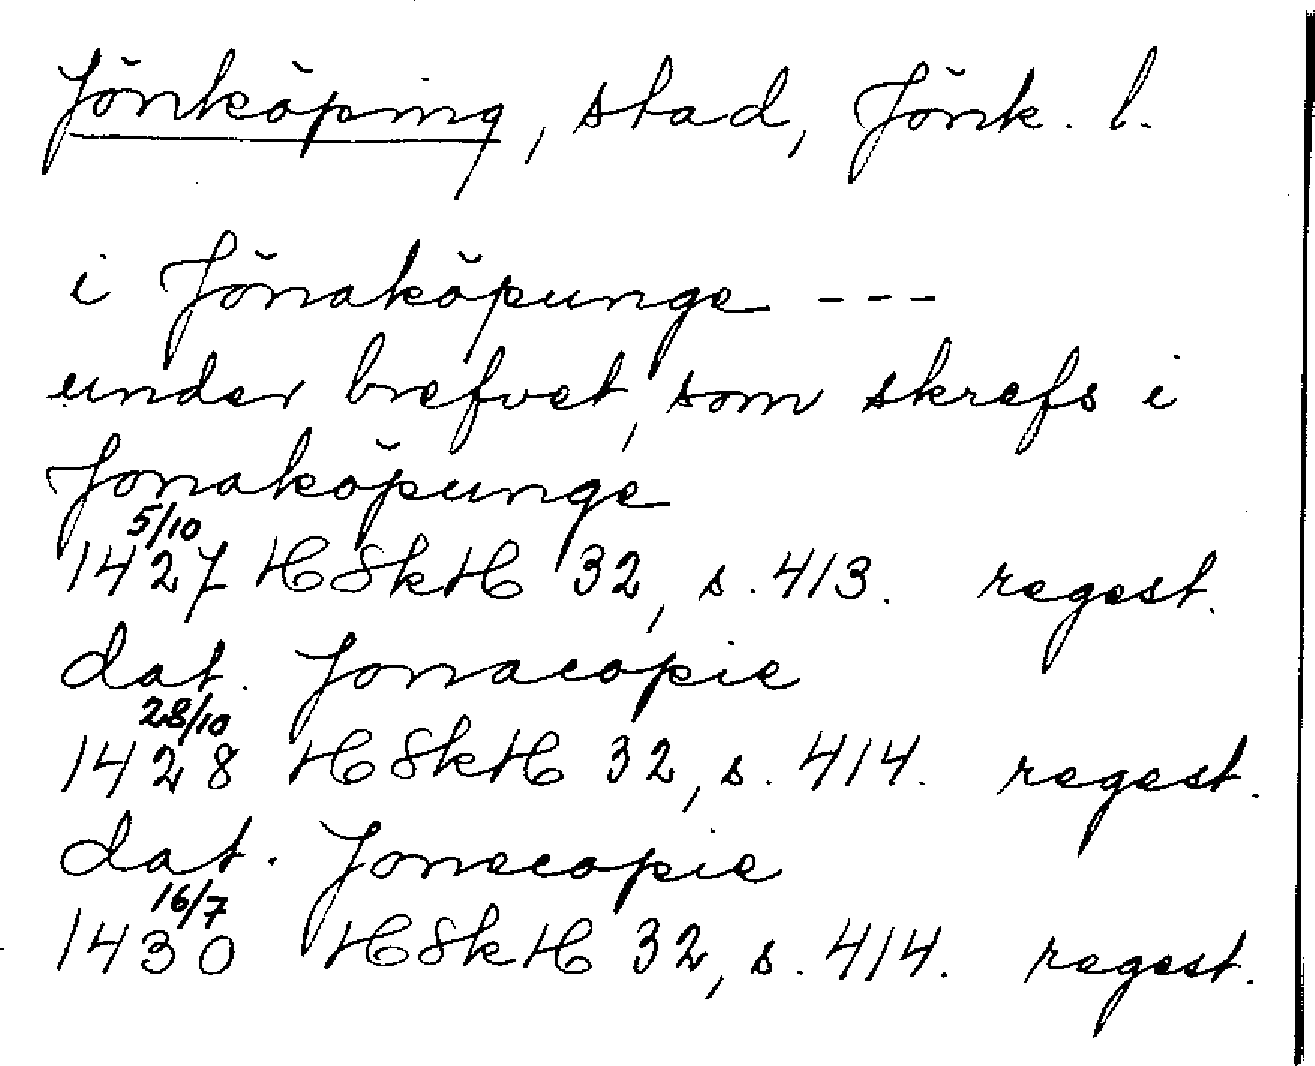 Jönköping, stad, Jönk. l.
i Jönaköpunge ---
under brefvet, som skrefs i
Jonaköpunge
5/10
1427 HSkH 32, s. 413. regest.
dat. Jonacopie
28/10
1428 HSkH 32, s. 414. regest.
dat. Jonecopie
16/7
1430 HSkH 32, s. 414. regest.